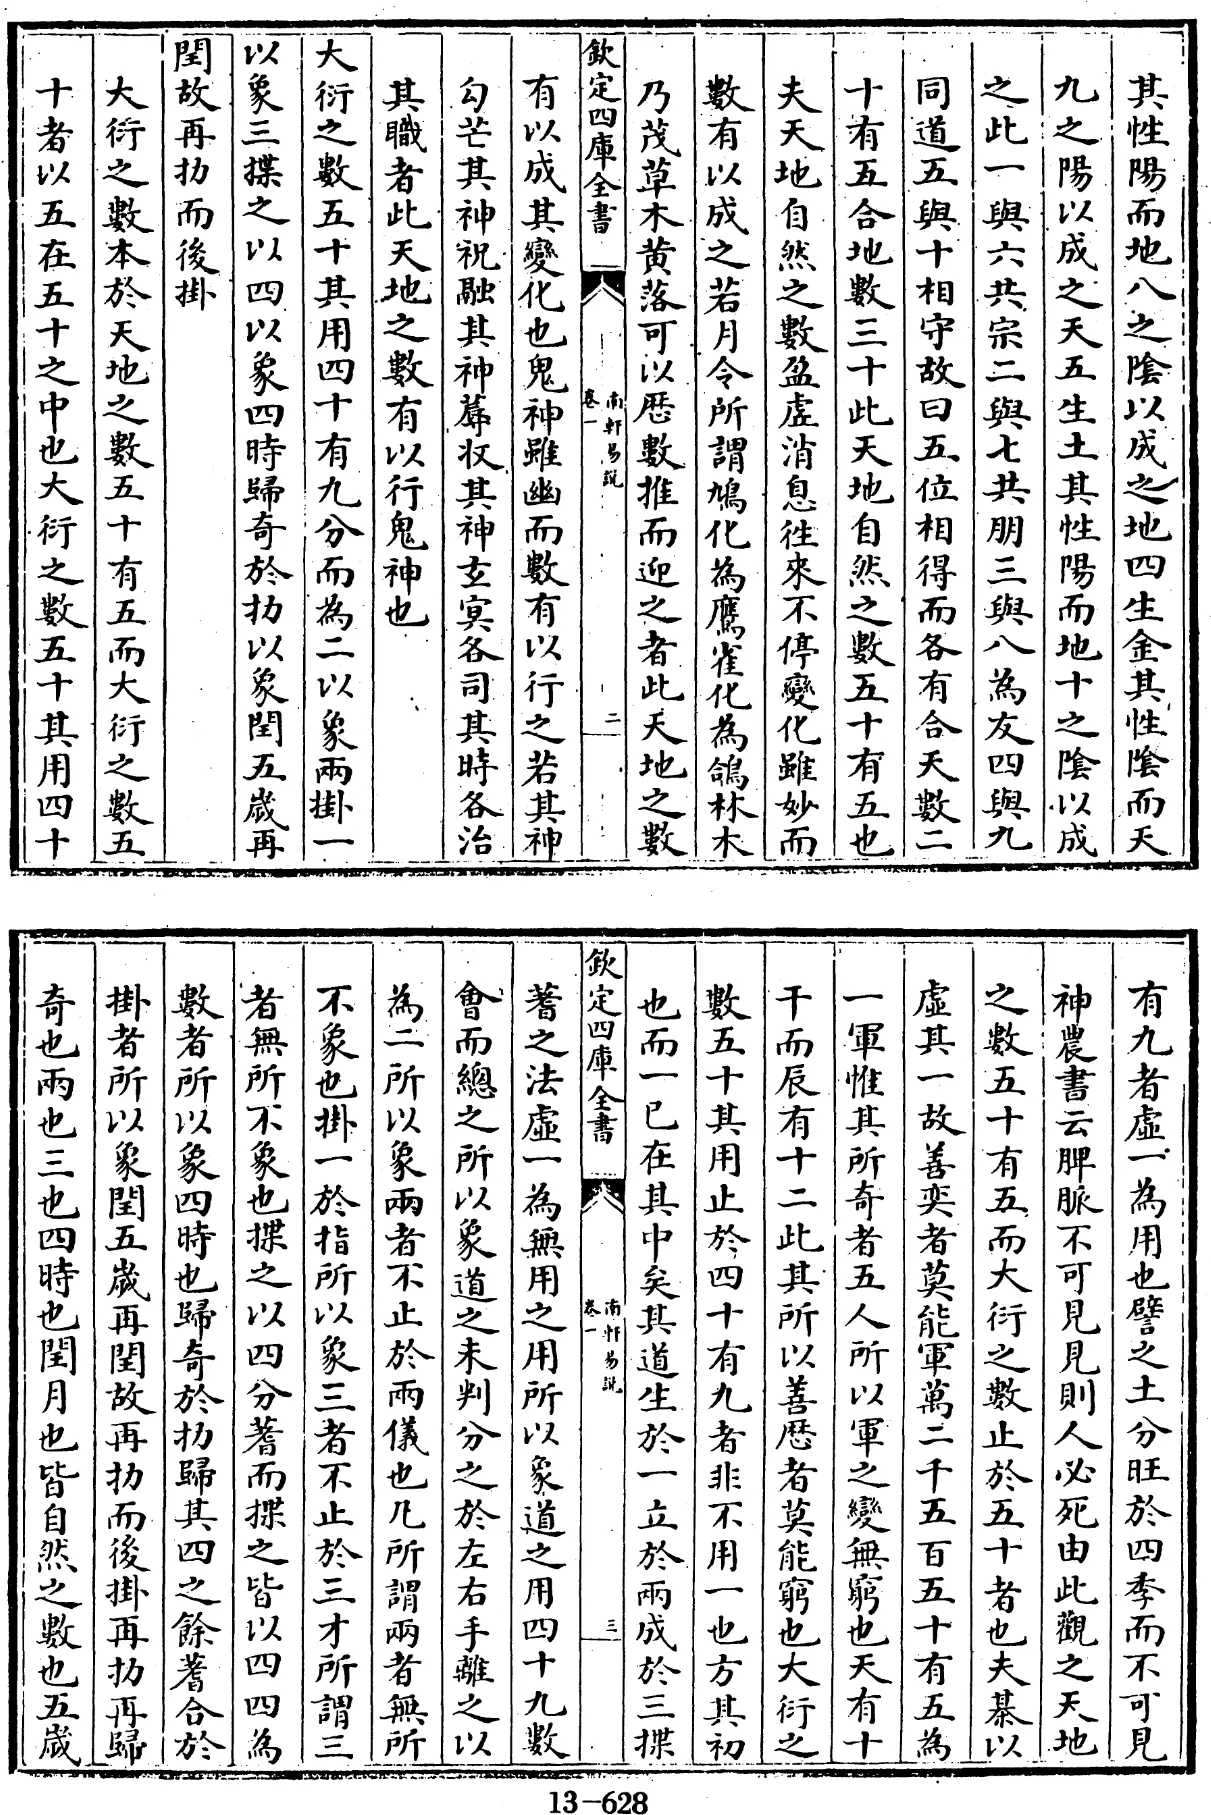 其性陽而地八之陰以成之地四生金其性陰而天
九之陽以成之天五生土其性陽而地十之陰以成
之此一與六共宗二與七共朋三與八為友四與九
同道五與十相守故曰五位相得而各有合天數二
十有五合地數三十此天地自然之數五十有五也
夫天地自然之數盈虛消息徃來不停變化雖妙而
數有以成之若月令所謂鳩化為鷹雀化為鴿林木
乃茂草木黄落可以厯數推而迎之者此天地之數
欽定四庫全書
南軒易說
卷一
二
有以成其變化也鬼神雖幽而數有以行之若其神
勾芒其神祝融其神蓐收其神玄冥各司其時各治
其職者此天地之數有以行鬼神也
大衍之數五十其用四十有九分而為二以象兩掛一
以象三揲之以四以象四時歸奇於扐以象閏五歲再
閏故再扐而後掛
大衍之數本於天地之數五十有五而大衍之數五
十者以五在五十之中也大衍之數五十其用四十
有九者虛一為用也譬之土分旺於四季而不可見
神農書云脾脈不可見見則人必死由此觀之天地
之數五十有五而大衍之數止於五十者也夫棊以
虛其一故善奕者莫能軍萬二千五百五十有五為
一軍惟其所奇者五人所以軍之變無窮也天有十
干而辰有十二此其所以善厯者莫能窮也大衍之
數五十其用止於四十有九者非不用一也方其初
也而一已在其中矣其道生於一立於兩成於三揲
欽定四庫全書
南軒易說
卷一
三
蓍之法虛一為無用之用所以象道之用四十九數
會而總之所以象道之未判分之於左右手離之以
為二所以象兩者不止於兩儀也凡所謂兩者無所
不象也掛一於指所以象三者不止於三才所謂三
者無所不象也揲之以四分蓍而揲之皆以四四為
數者所以象四時也歸奇於扐歸其四之餘蓍合於
掛者所以象閏五歲再閏故再扐而後掛再扐再歸
奇也兩也三也四時也閏月也皆自然之數也五歲
13-628